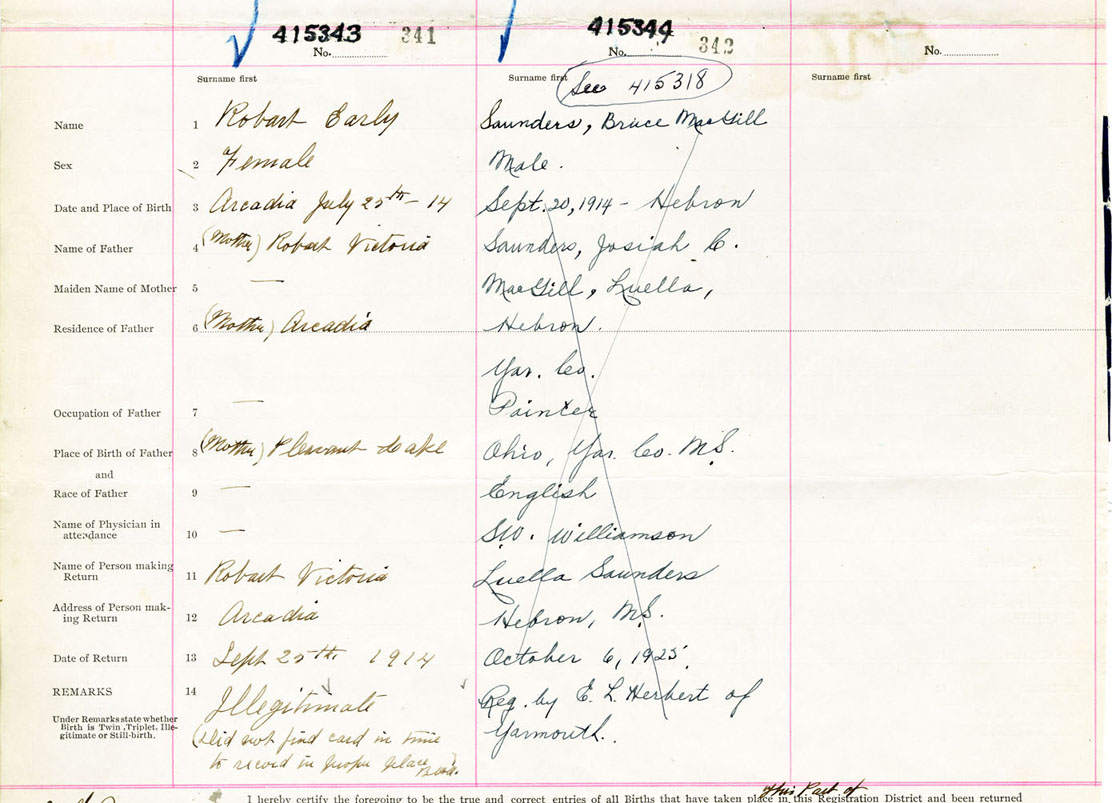 415343 341
415344 342
No.
No.
No.
Surname first
Surname first
Surname first
See 415318
Name 1 Robart Early Saunders, Bruce MacGill
Sex 2 Female Male.
Date and Place of Birth 3 Arcadia July 25th - 14 Sept. 20, 1914 - Hebron
Name of Father 4 (Mother) Robart Victoria Saunders, Josiah C.
Maiden Name of Mother 5 — MacGill, Luella,
Residence of Father 6 (Mother) Arcadia Hebron.
Yar. Co.
Occupation of Father 7 — Painter
Place of Birth of Father 8 (Mother) Pleasant Ohio, Yar. Co. N.S.
and
Race of Father 9 — English
Name of Physician in
attendance 10 — S.W. Williamson
Name of Person making
Return 11 Robart Victoria Luella Saunders
Address of Person mak-
ing Return 12 Arcadia Hebron, N.S.
Date of Return 13 Sept 25th 1914 October 6, 1925.
REMARKS 14 Illegitimate Reg. by E. L. Herbert of
Under Remarks state whether
Birth is Twin, Triplet, Ille-
gitimate or Still-birth.
Yarmouth.
(Did not find card in time
to record in proper place
this Part of
I hereby certify the foregoing to be the true and correct entries of all Births that have taken place in this Registration District and been returned